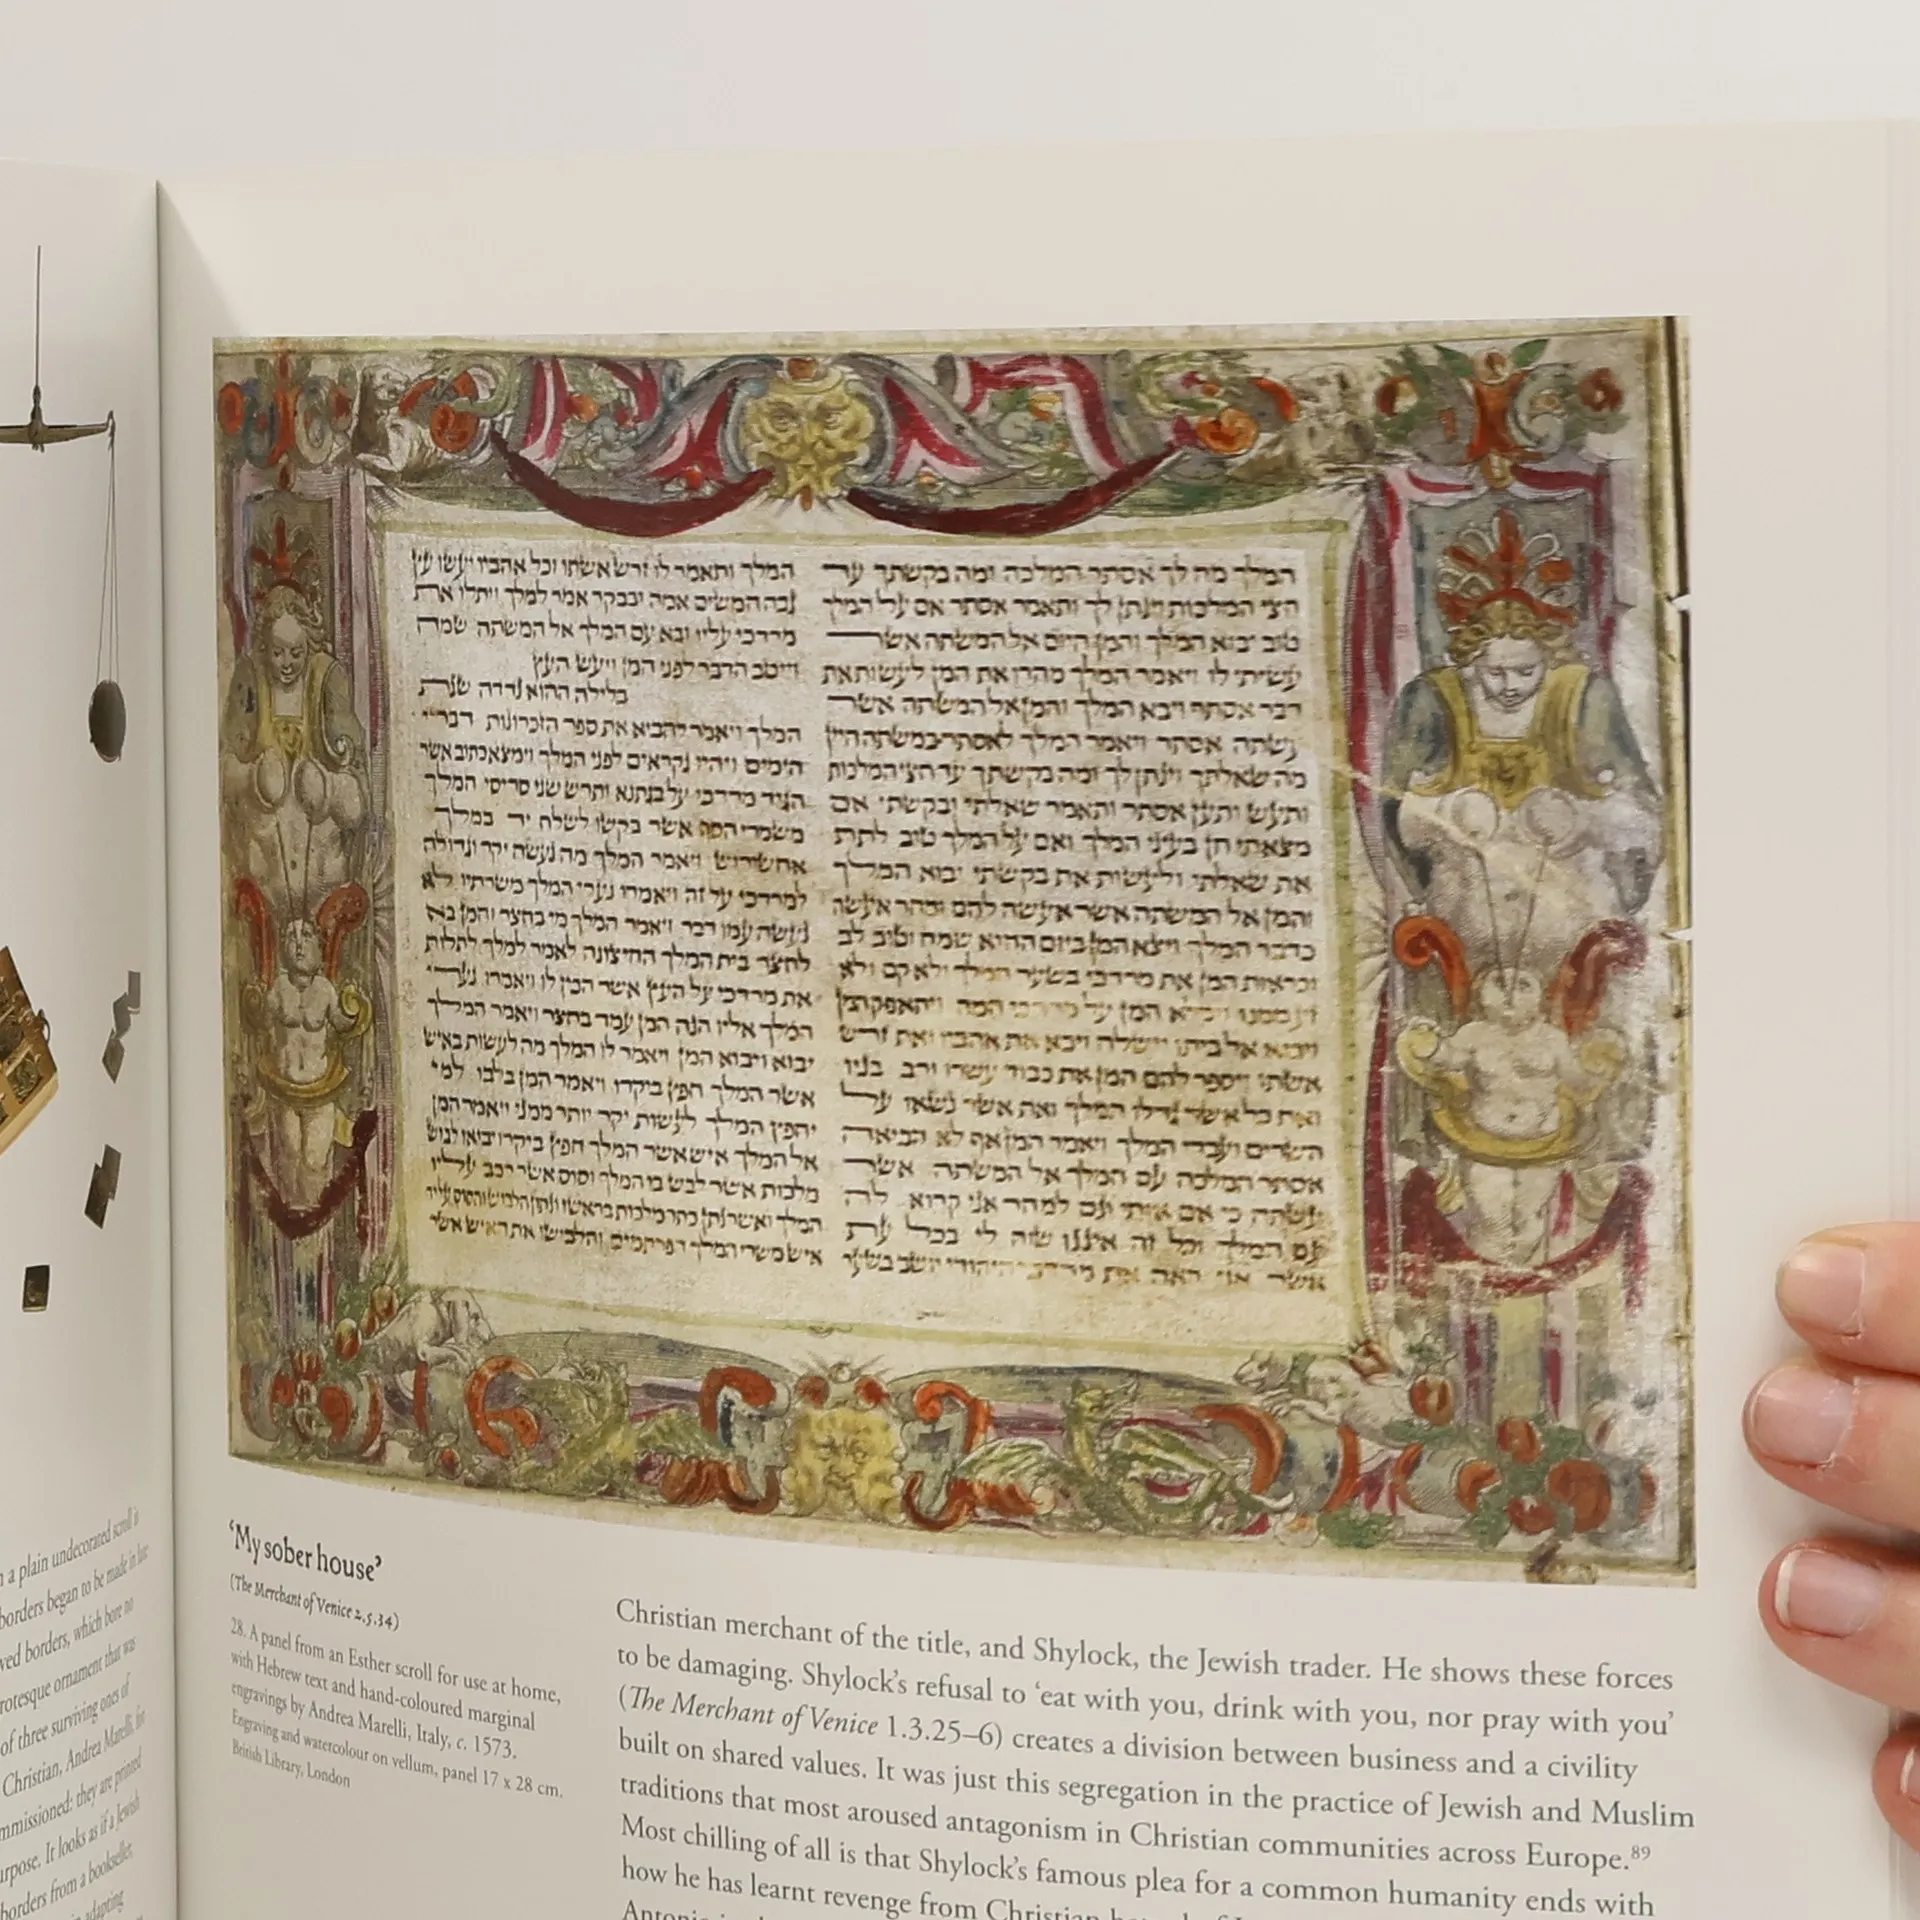 המלך מה לך אסתר המלכה ומה בקשתך עד
חצי המלכות וינתן לך ותאמר אסתר אם על המלך
טוב יבוא המלך והמן היום אל המשתה אשר
עשיתי לו ויאמר המלך מהרו את המן לעשות את
דבר אסתר ויבא המלך והמן אל המשתה אשר
עשתה אסתר ויאמר המלך לאסתר במשתה היין
מה שאלתך וינתן לך ומה בקשתך עד חצי המלכות
ותעש ותען אסתר ותאמר שאלתי ובקשתי אם
מצאתי חן בעיני המלך ואם על המלך טוב לתת
את שאלתי ולעשות את בקשתי יבוא המלך
והמן אל המשתה אשר אעשה להם ומחר אעשה
כדבר המלך ויצא המן ביום ההוא שמח וטוב לב
וכראות המן את מרדכי בשער המלך ולא קם ולא
זע ממנו וימלא המן על מרדכי חמה ויתאפק המן
ויבוא אל ביתו וישלח ויבא את אהביו ואת זרש
אשתו ויספר להם המן את כבוד עשרו ורב בניו
ואת כל אשר גדלו המלך ואת אשר נשאו על
השרים ועבדי המלך ויאמר המן אף לא הביאה
אסתר המלכה עם המלך אל המשתה אשר
עשתה כי אם אותי וגם למחר אני קרוא לה
עם המלך וכל זה איננו שוה לי בכל עת
אשר אני ראה את מרדכי היהודי יושב בשער
המלך ותאמר לו זרש אשתו וכל אהביו יעשו עץ
גבה חמשים אמה ובבקר אמר למלך ויתלו את
מרדכי עליו ובא עם המלך אל המשתה שמח
וייטב הדבר לפני המן ויעש העץ
בלילה ההוא נדדה שנת
המלך ויאמר להביא את ספר הזכרונות דברי
הימים ויהיו נקראים לפני המלך וימצא כתוב אשר
הגיד מרדכי על בגתנא ותרש שני סריסי המלך
משמרי הסף אשר בקשו לשלח יד במלך
אחשורוש ויאמר המלך מה נעשה יקר וגדולה
למרדכי על זה ויאמרו נערי המלך משרתיו לא
נעשה עמו דבר ויאמר המלך מי בחצר והמן בא
לחצר בית המלך החיצונה לאמר למלך לתלות
את מרדכי על העץ אשר הכין לו ויאמרו נערי
המלך אליו הנה המן עמד בחצר ויאמר המלך
יבוא ויבוא המן ויאמר לו המלך מה לעשות באיש
אשר המלך חפץ ביקרו ויאמר המן בלבו למי
יחפץ המלך לעשות יקר יותר ממני ויאמר המן
אל המלך איש אשר המלך חפץ ביקרו יביאו לבוש
מלכות אשר לבש בו המלך וסוס אשר רכב עליו
המלך ואשר נתן כתר מלכות בראשו ונתון הלבוש והסוס על יד
איש משרי המלך הפרתמים והלבישו את האיש אשר
n a plain undecorated scroll is
borders began to be made in late
ved borders, which bore no
rotesque ornament that was
of three surviving ones of
Christian, Andrea Marelli, for
mmissioned: they are printed
urpose. It looks as if a Jewish
borders from a bookseller,
adapting
'My sober house'
(The Merchant of Venice 2.5.34)
28. A panel from an Esther scroll for use at home,
with Hebrew text and hand-coloured marginal
engravings by Andrea Marelli, Italy, c. 1573.
Engraving and watercolour on vellum, panel 17 x 28 cm.
British Library, London
Christian merchant of the title, and Shylock, the Jewish trader. He shows these forces
to be damaging. Shylock's refusal to 'eat with you, drink with you, nor pray with you'
(The Merchant of Venice 1.3.25–6) creates a division between business and a civility
built on shared values. It was just this segregation in the practice of Jewish and Muslim
traditions that most aroused antagonism in Christian communities across Europe.89
Most chilling of all is that Shylock's famous plea for a common humanity ends with
how he has learnt revenge from Christian